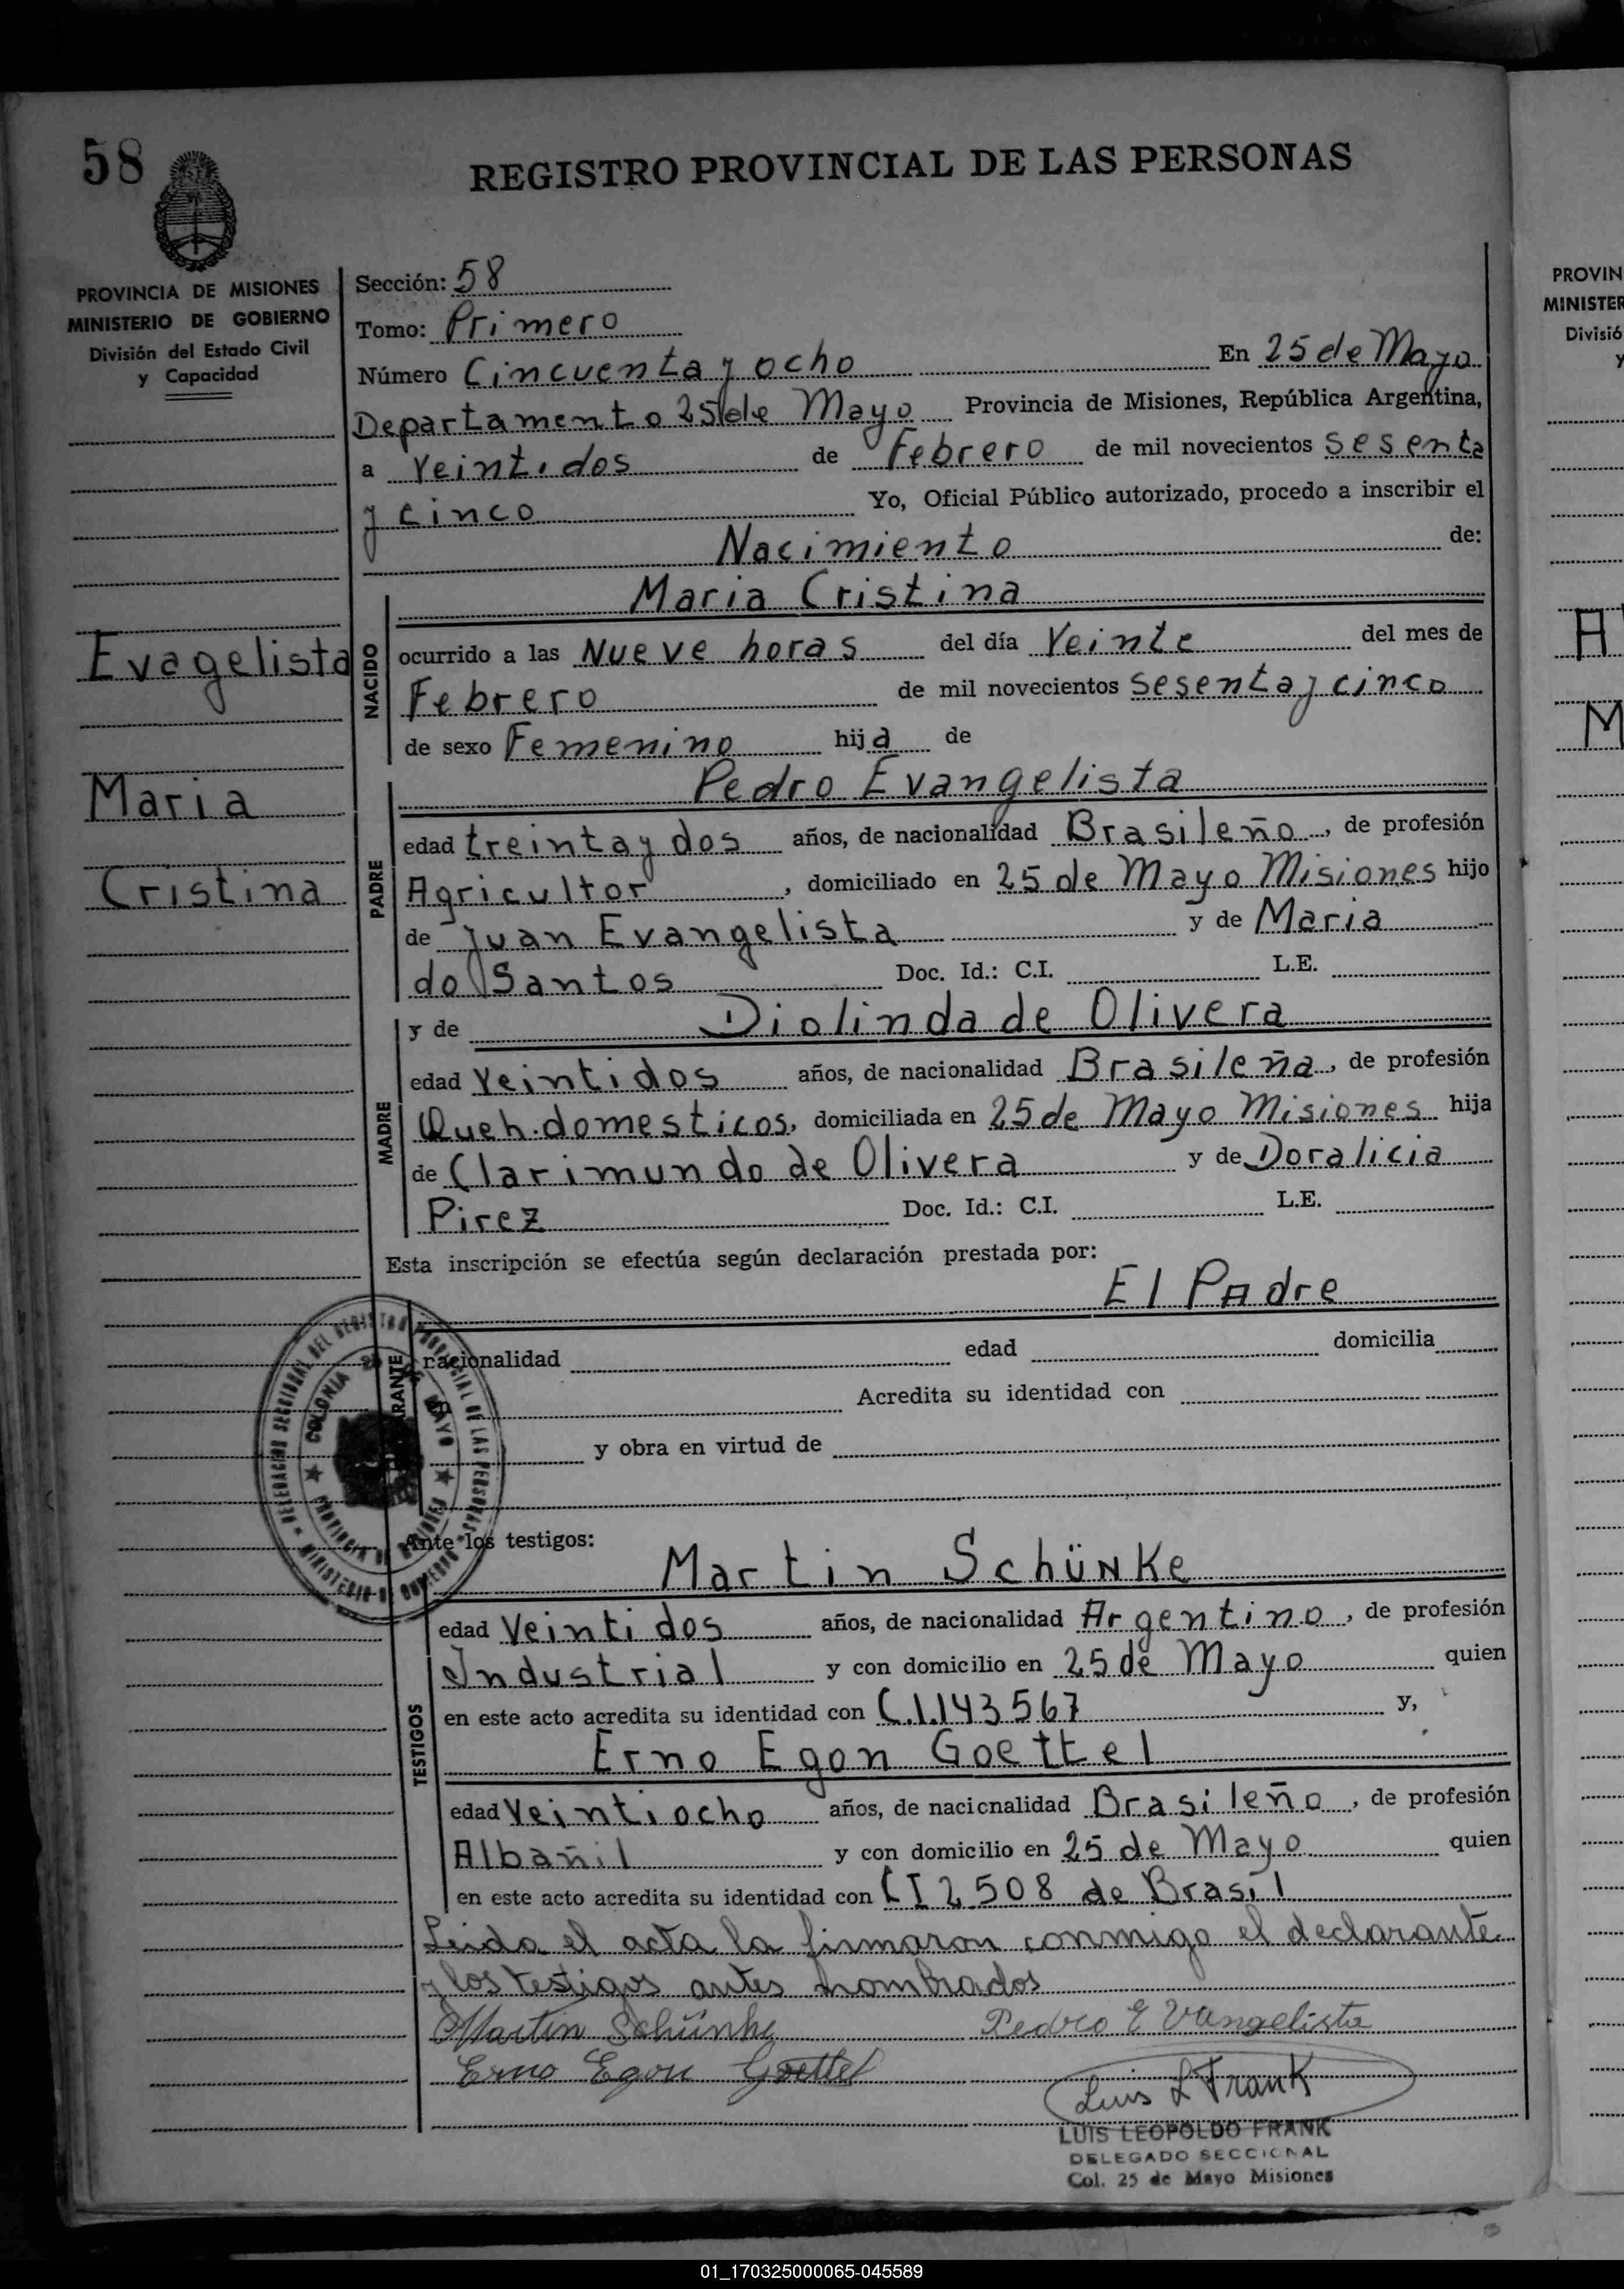 58
REGISTRO PROVINCIAL DE LAS PERSONAS
PROVINCIA DE MISIONES
MINISTERIO DE GOBIERNO
División del Estado Civil
y Capacidad
Evagelista
Maria
Cristina
Sección: 58
Tomo: Primero
Número Cincuenta y ocho En 25 de Mayo
Departamento 25 de Mayo Provincia de Misiones, República Argentina,
a Veintidos de Febrero de mil novecientos sesenta
y cinco Yo, Oficial Público autorizado, procedo a inscribir el
Nacimiento de:
Maria Cristina
NACIDO
ocurrido a las Nueve horas del día Veinte del mes de
Febrero de mil novecientos sesenta y cinco
de sexo Femenino hija de
Pedro Evangelista
PADRE
edad treinta y dos años, de nacionalidad Brasileño, de profesión
Agricultor, domiciliado en 25 de Mayo Misiones hijo
de Juan Evangelista y de Maria
do Santos Doc. Id.: C.I. L.E.
y de Diolinda de Olivera
MADRE
edad Veintidos años, de nacionalidad Brasileña, de profesión
Queh. domesticos, domiciliada en 25 de Mayo Misiones hija
de Clarimundo de Olivera y de Doralicia
Pirez Doc. Id.: C.I. L.E.
Esta inscripción se efectúa según declaración prestada por:
El PAdre
RANTE
nacionalidad edad domicilia
Acredita su identidad con
y obra en virtud de
Ante los testigos:
Martin Schünke
TESTIGOS
edad Veintidos años, de nacionalidad Argentino, de profesión
Industrial y con domicilio en 25 de Mayo quien
en este acto acredita su identidad con C.I.143567 y,
Erno Egon Goettel
edad Veintiocho años, de nacionalidad Brasileño, de profesión
Albañil y con domicilio en 25 de Mayo quien
en este acto acredita su identidad con CI 2508 de Brasil
Leida el acta la firmaron conmigo el declarante
y los testigos antes nombrados
Martin Schünke Pedro Evangelista
Erno Egon Goettel
Luis L Frank
LUIS LEOPOLDO FRANK
DELEGADO SECCIONAL
Col. 25 de Mayo Misiones
PROVIN
MINISTER
Divisió
y
A
M
01_170325000065-045589